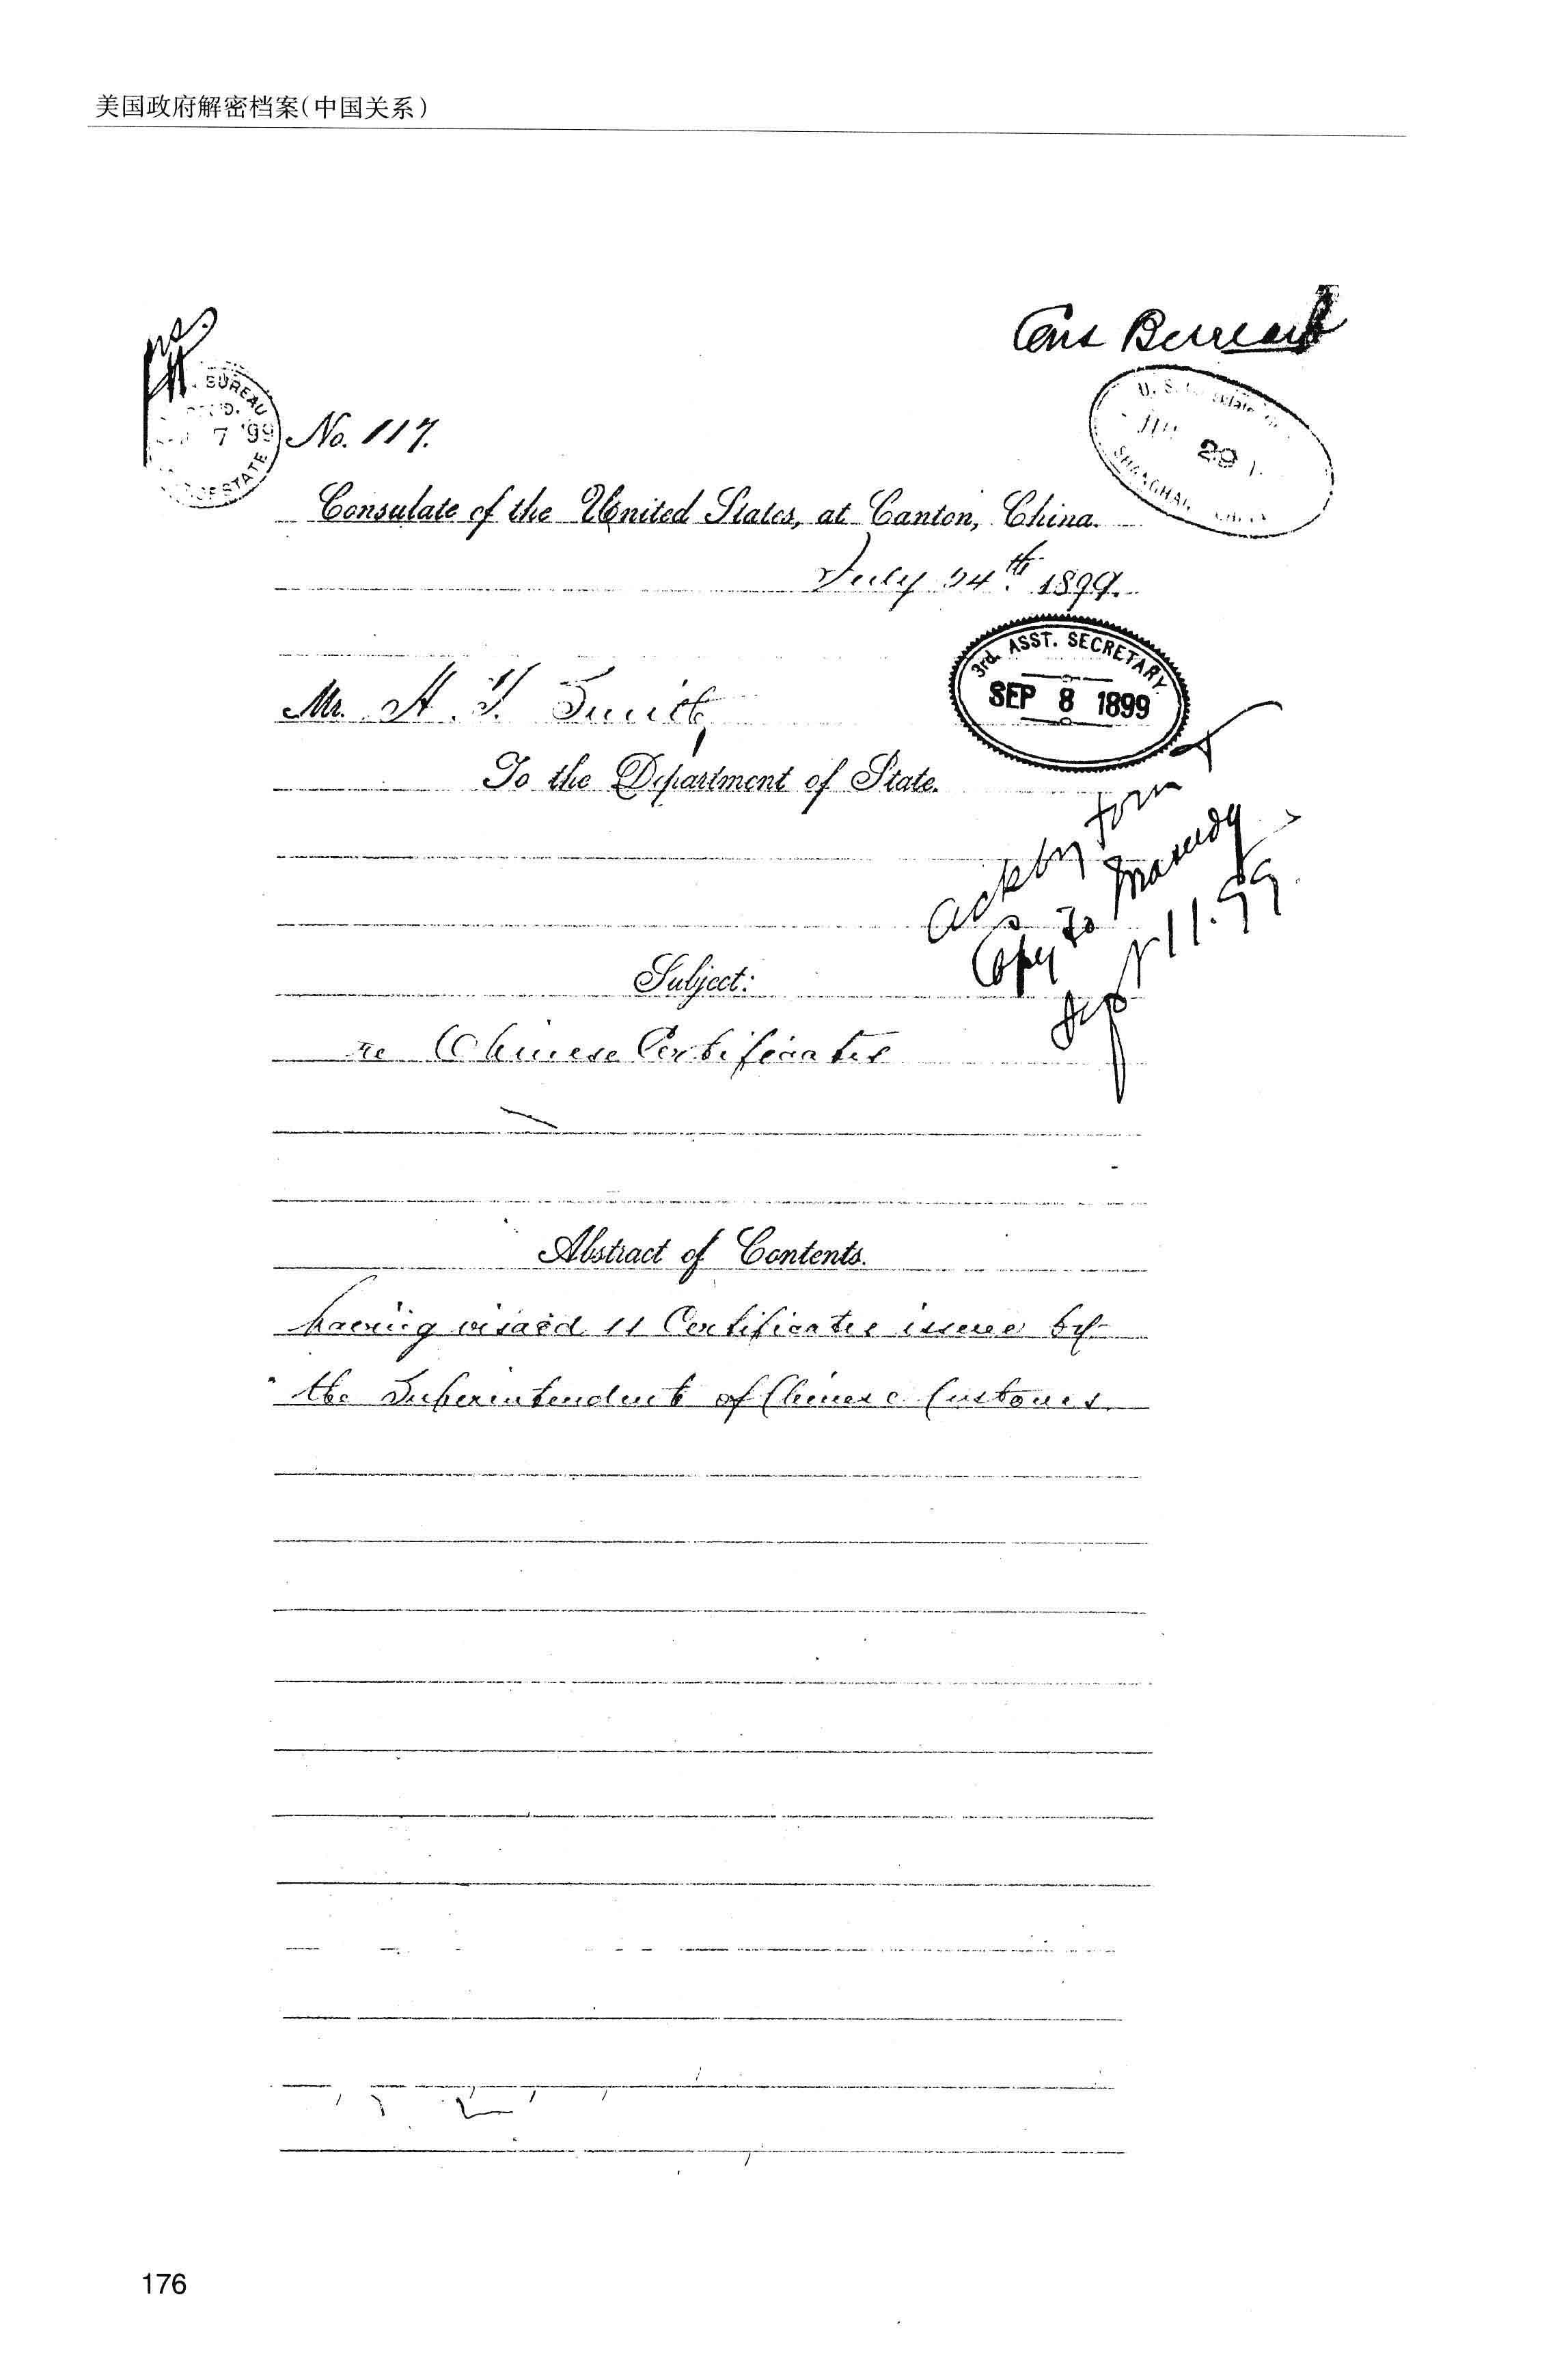 美国政府解密档案(中国关系)
Cons Bureau
BUREAU
7 '99
OF STATE
No. 117.
U. S.
29
SHANGHAI,
Consulate of the United States, at Canton, China.
July 24th 1899.
3rd. ASST. SECRETARY.
SEP 8 1899
Mr. H. Smith
To the Department of State.
Ack by form
Copy to Treasury
Sept 11. 99.
Subject:
re Chinese Certificates
Abstract of Contents.
having visaed 11 Certificates issue by
the Superintendent of Chinese Customs.
176